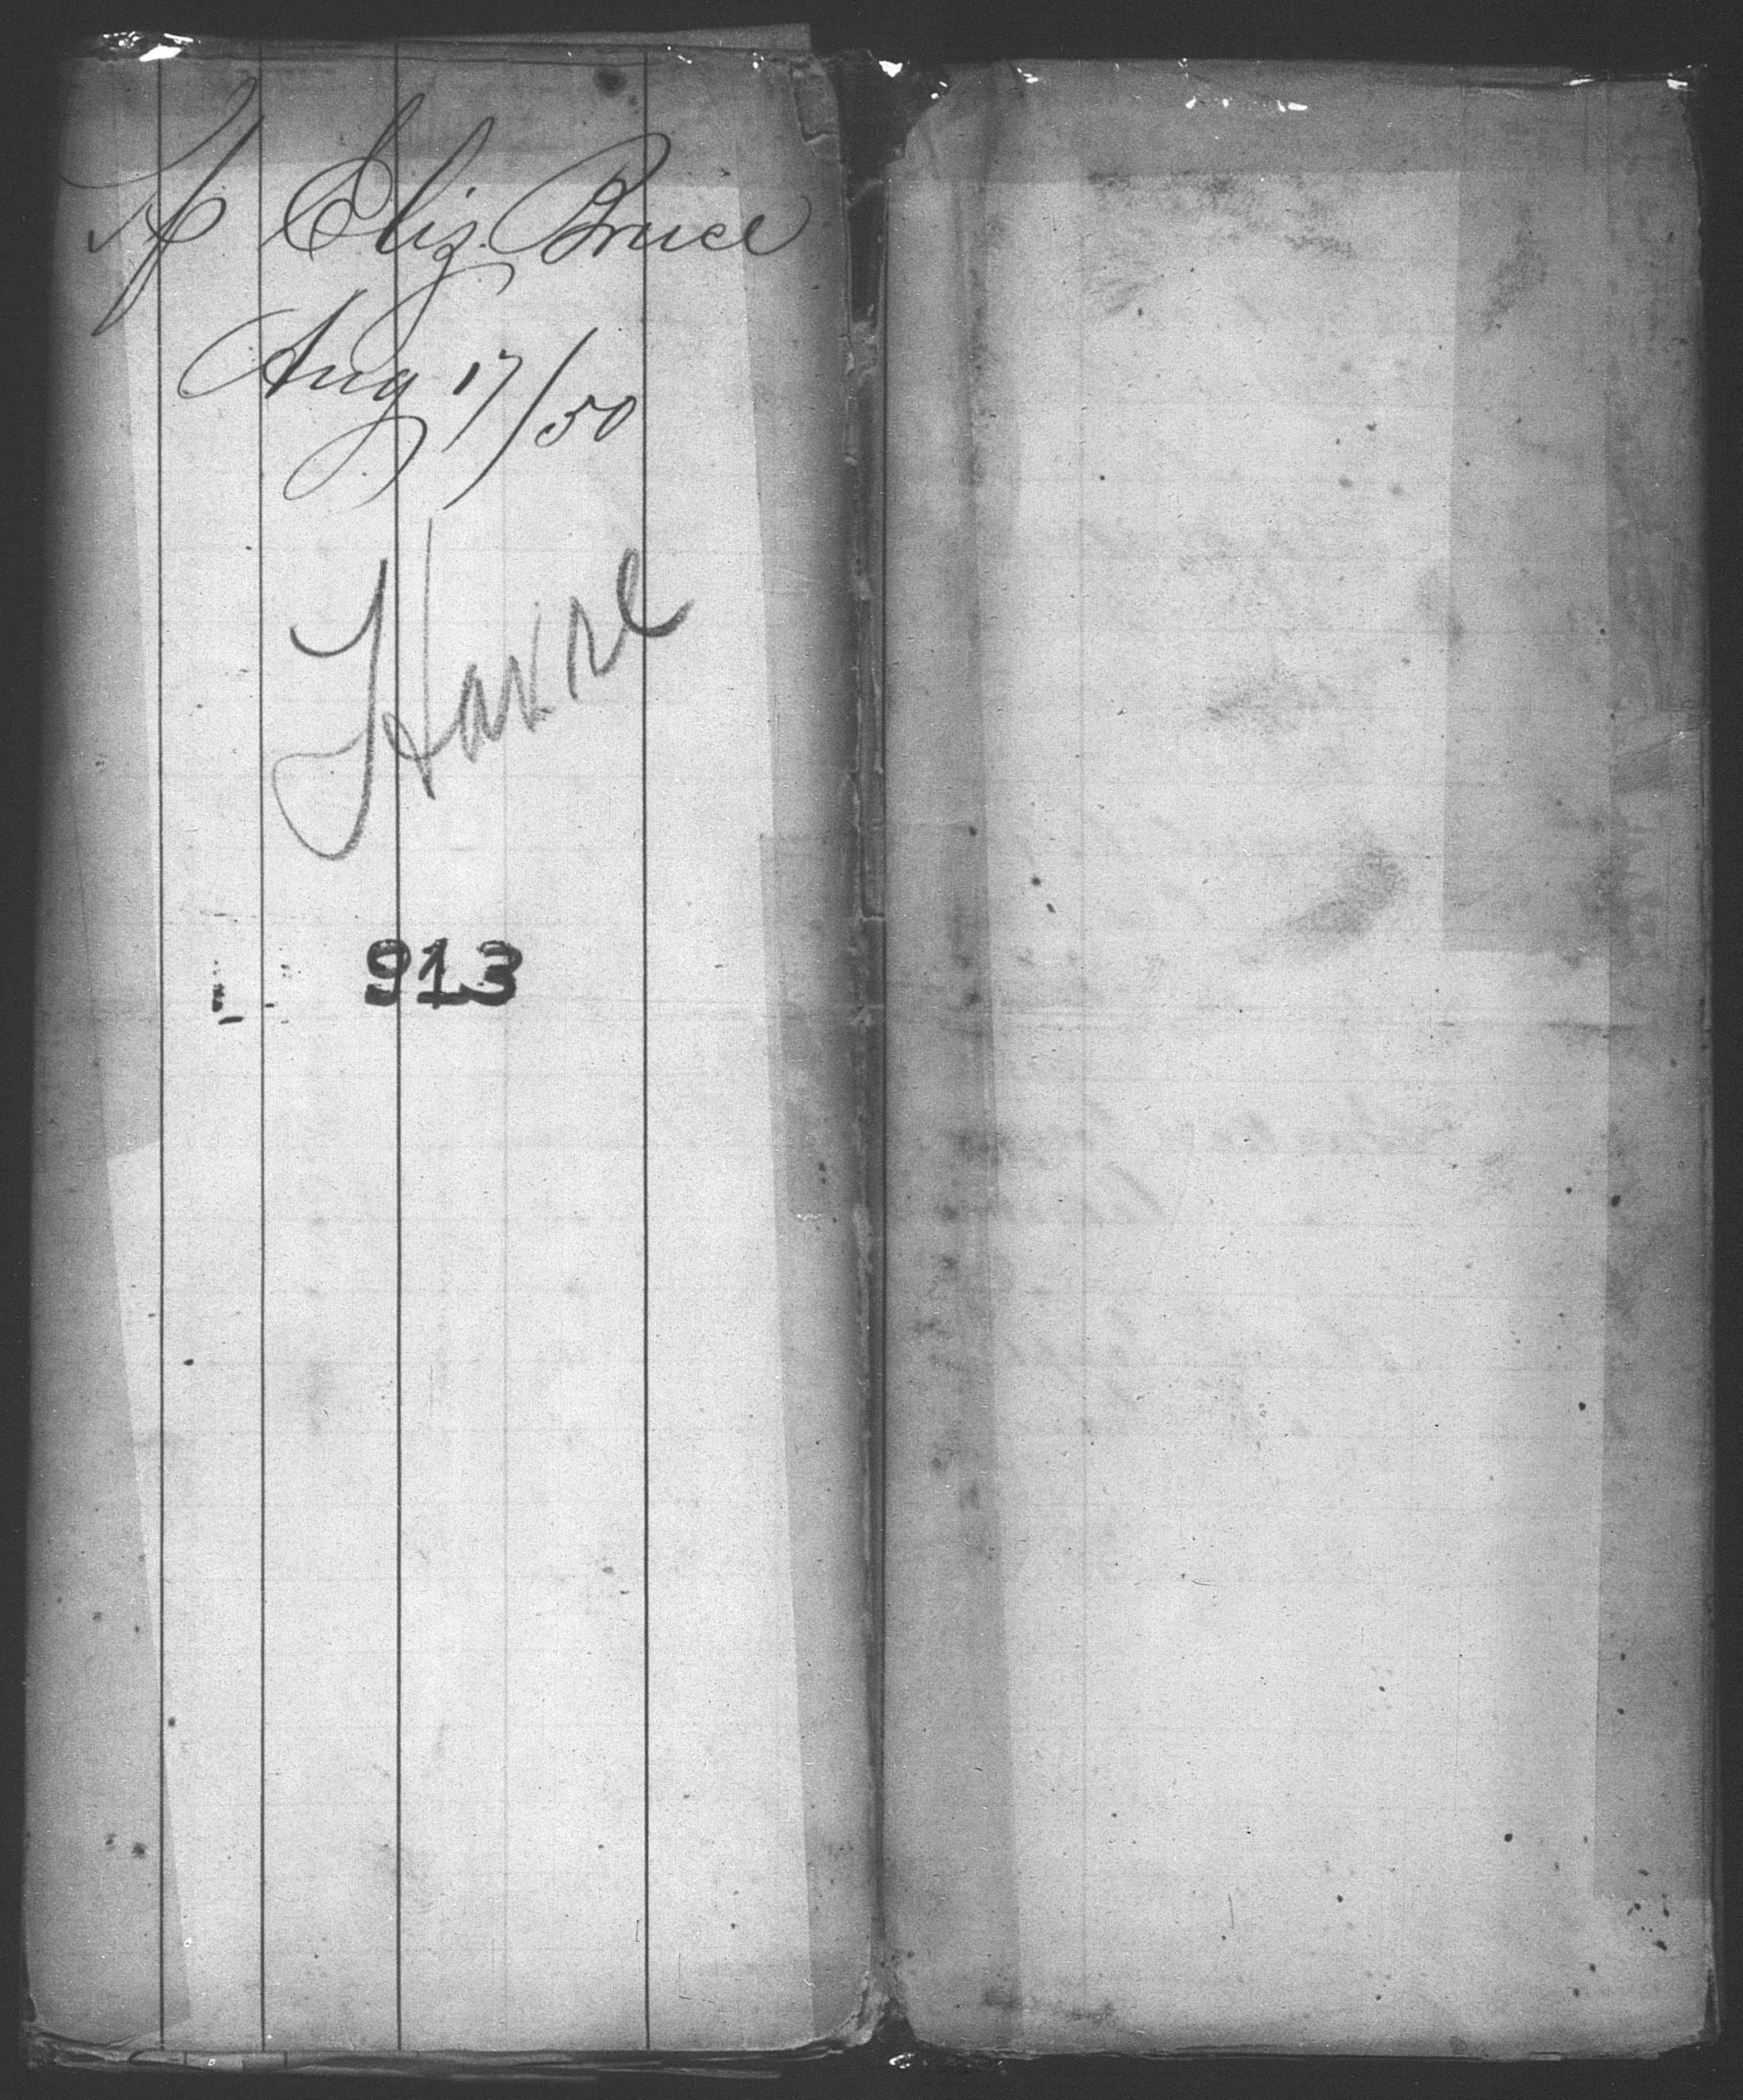 Sp Eliz Bruce
Aug 17/50
Havre
913